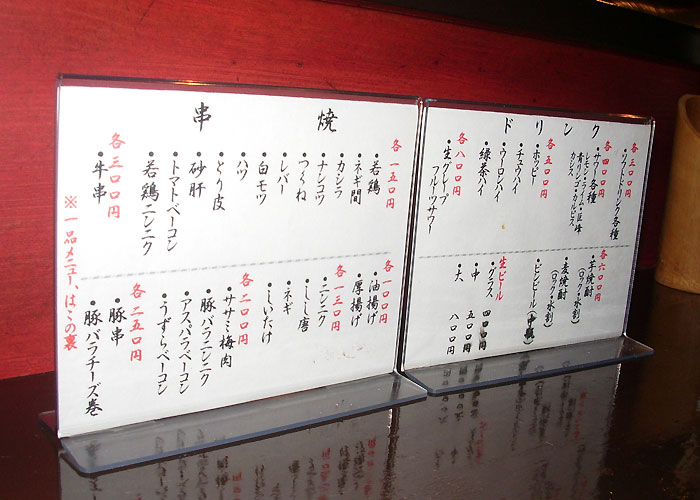 串焼
各一五〇円
・若鶏
・ネギ間
・カシラ
・ナンコツ
・つくね
・レバー
・白モツ
・ハツ
・とり皮
・砂肝
・トマトベーコン
・若鶏ニンニク
各三〇〇円
・牛串
各一〇〇円
・油揚げ
・厚揚げ
各一三〇円
・ニンニク
・しし唐
・ネギ
・しいたけ
各二〇〇円
・ササミ梅肉
・豚バラニンニク
・アスパラベーコン
・うずらベーコン
各二五〇円
・豚串
・豚バラチーズ巻
※一品メニューはこの裏
ドリンク
各三〇〇円
・ソフトドリンク各種
各四〇〇円
・サワー各種
レモン・ライム・巨峰
青リンゴ・カルピス
カシス
各五〇〇円
・ホッピー
・チュウハイ
・ウーロンハイ
・緑茶ハイ
各八〇〇円
・生グレープ
フルーツサワー
各六〇〇円
・芋焼酎
(ロック・水割)
・麦焼酎
(ロック・水割)
・ビンビール(中瓶)
生ビール
・グラス 四〇〇円
・中 五〇〇円
・大 八〇〇円